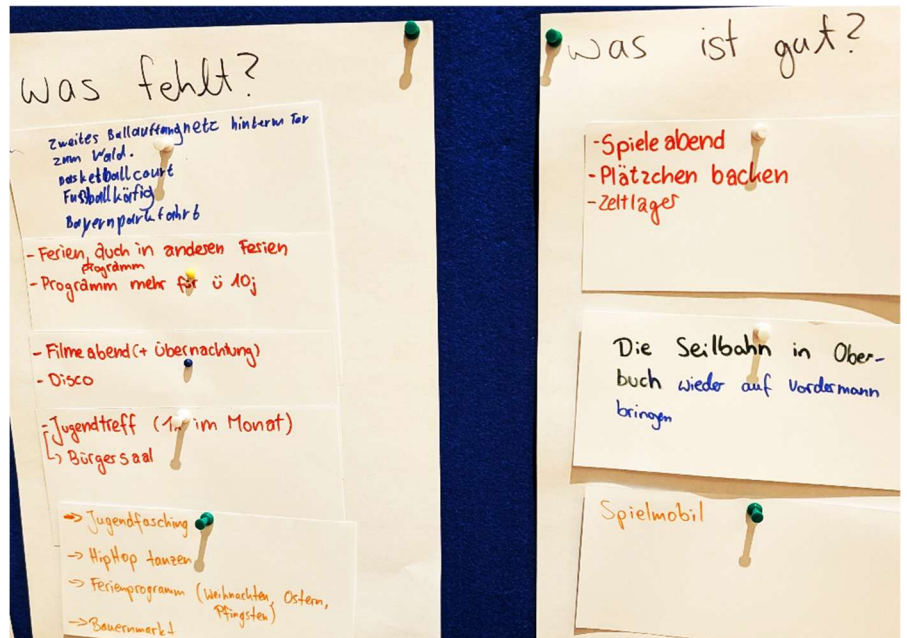 was fehlt?
Zweites Ballauffangnetz hinterm Tor
zum Wald.
Basketballcourt
Fußballkäfig
Bayernparkfahrt
- Ferien, auch in anderen Ferien
programm
- Programm mehr für ü 10j
- Filmeabend (+ Übernachtung)
- Disco
- Jugendtreff (1x im Monat)
↳ Bürgersaal
-> Jugendfasching
-> HipHop tanzen
-> Ferienprogramm (Weihnachten, Ostern,
Pfingsten)
-> Bauernmarkt
was ist gut?
- Spieleabend
- Plätzchen backen
- Zeltlager
Die Seilbahn in Ober-
buch wieder auf Vordermann
bringen
Spielmobil